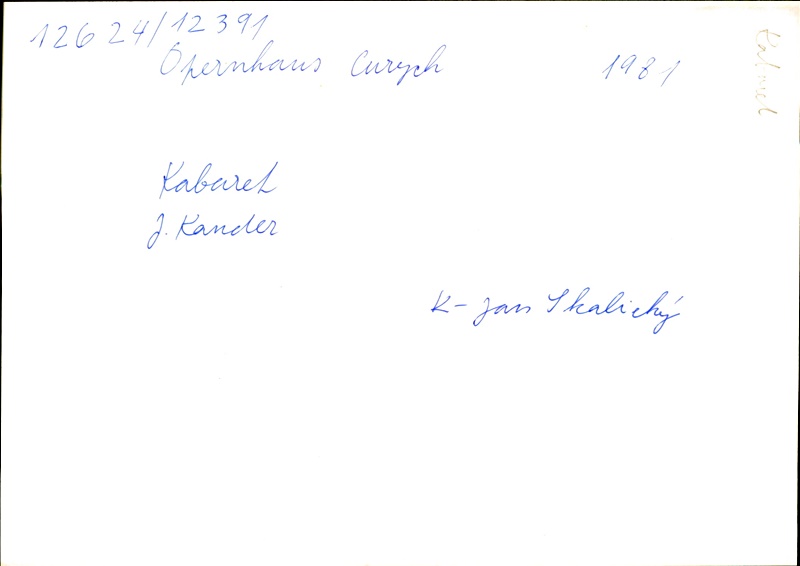 12624/12391
Opernhaus Curych 1981
Kabaret
J. Kander
K - Jan Skalický